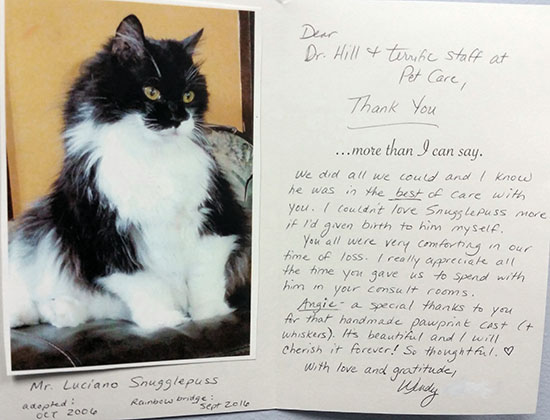 Mr. Luciano Snugglepuss
adopted:
OCT 2006
Rainbow bridge:
Sept 2016
Dear
Dr. Hill + terrific staff at
Pet Care,
Thank You
...more than I can say.
We did all we could and I know
he was in the best of care with
you. I couldn't love Snugglepuss more
if I'd given birth to him myself.
You all were very comforting in our
time of loss. I really appreciate all
the time you gave us to spend with
him in your consult rooms.
Angie - a special thanks to you
for that handmade pawprint cast (+
whiskers). Its beautiful and I will
cherish it forever! So thoughtful. ♡
With love and gratitude,
Wendy